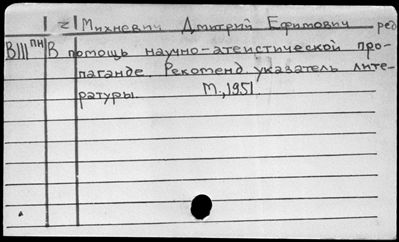 Михневич Дмитрий Ефимович ред
BIII ПН В помощь научно-атеистической про-
паганде. Рекоменд. указатель лите-
ратуры. М., 1951.